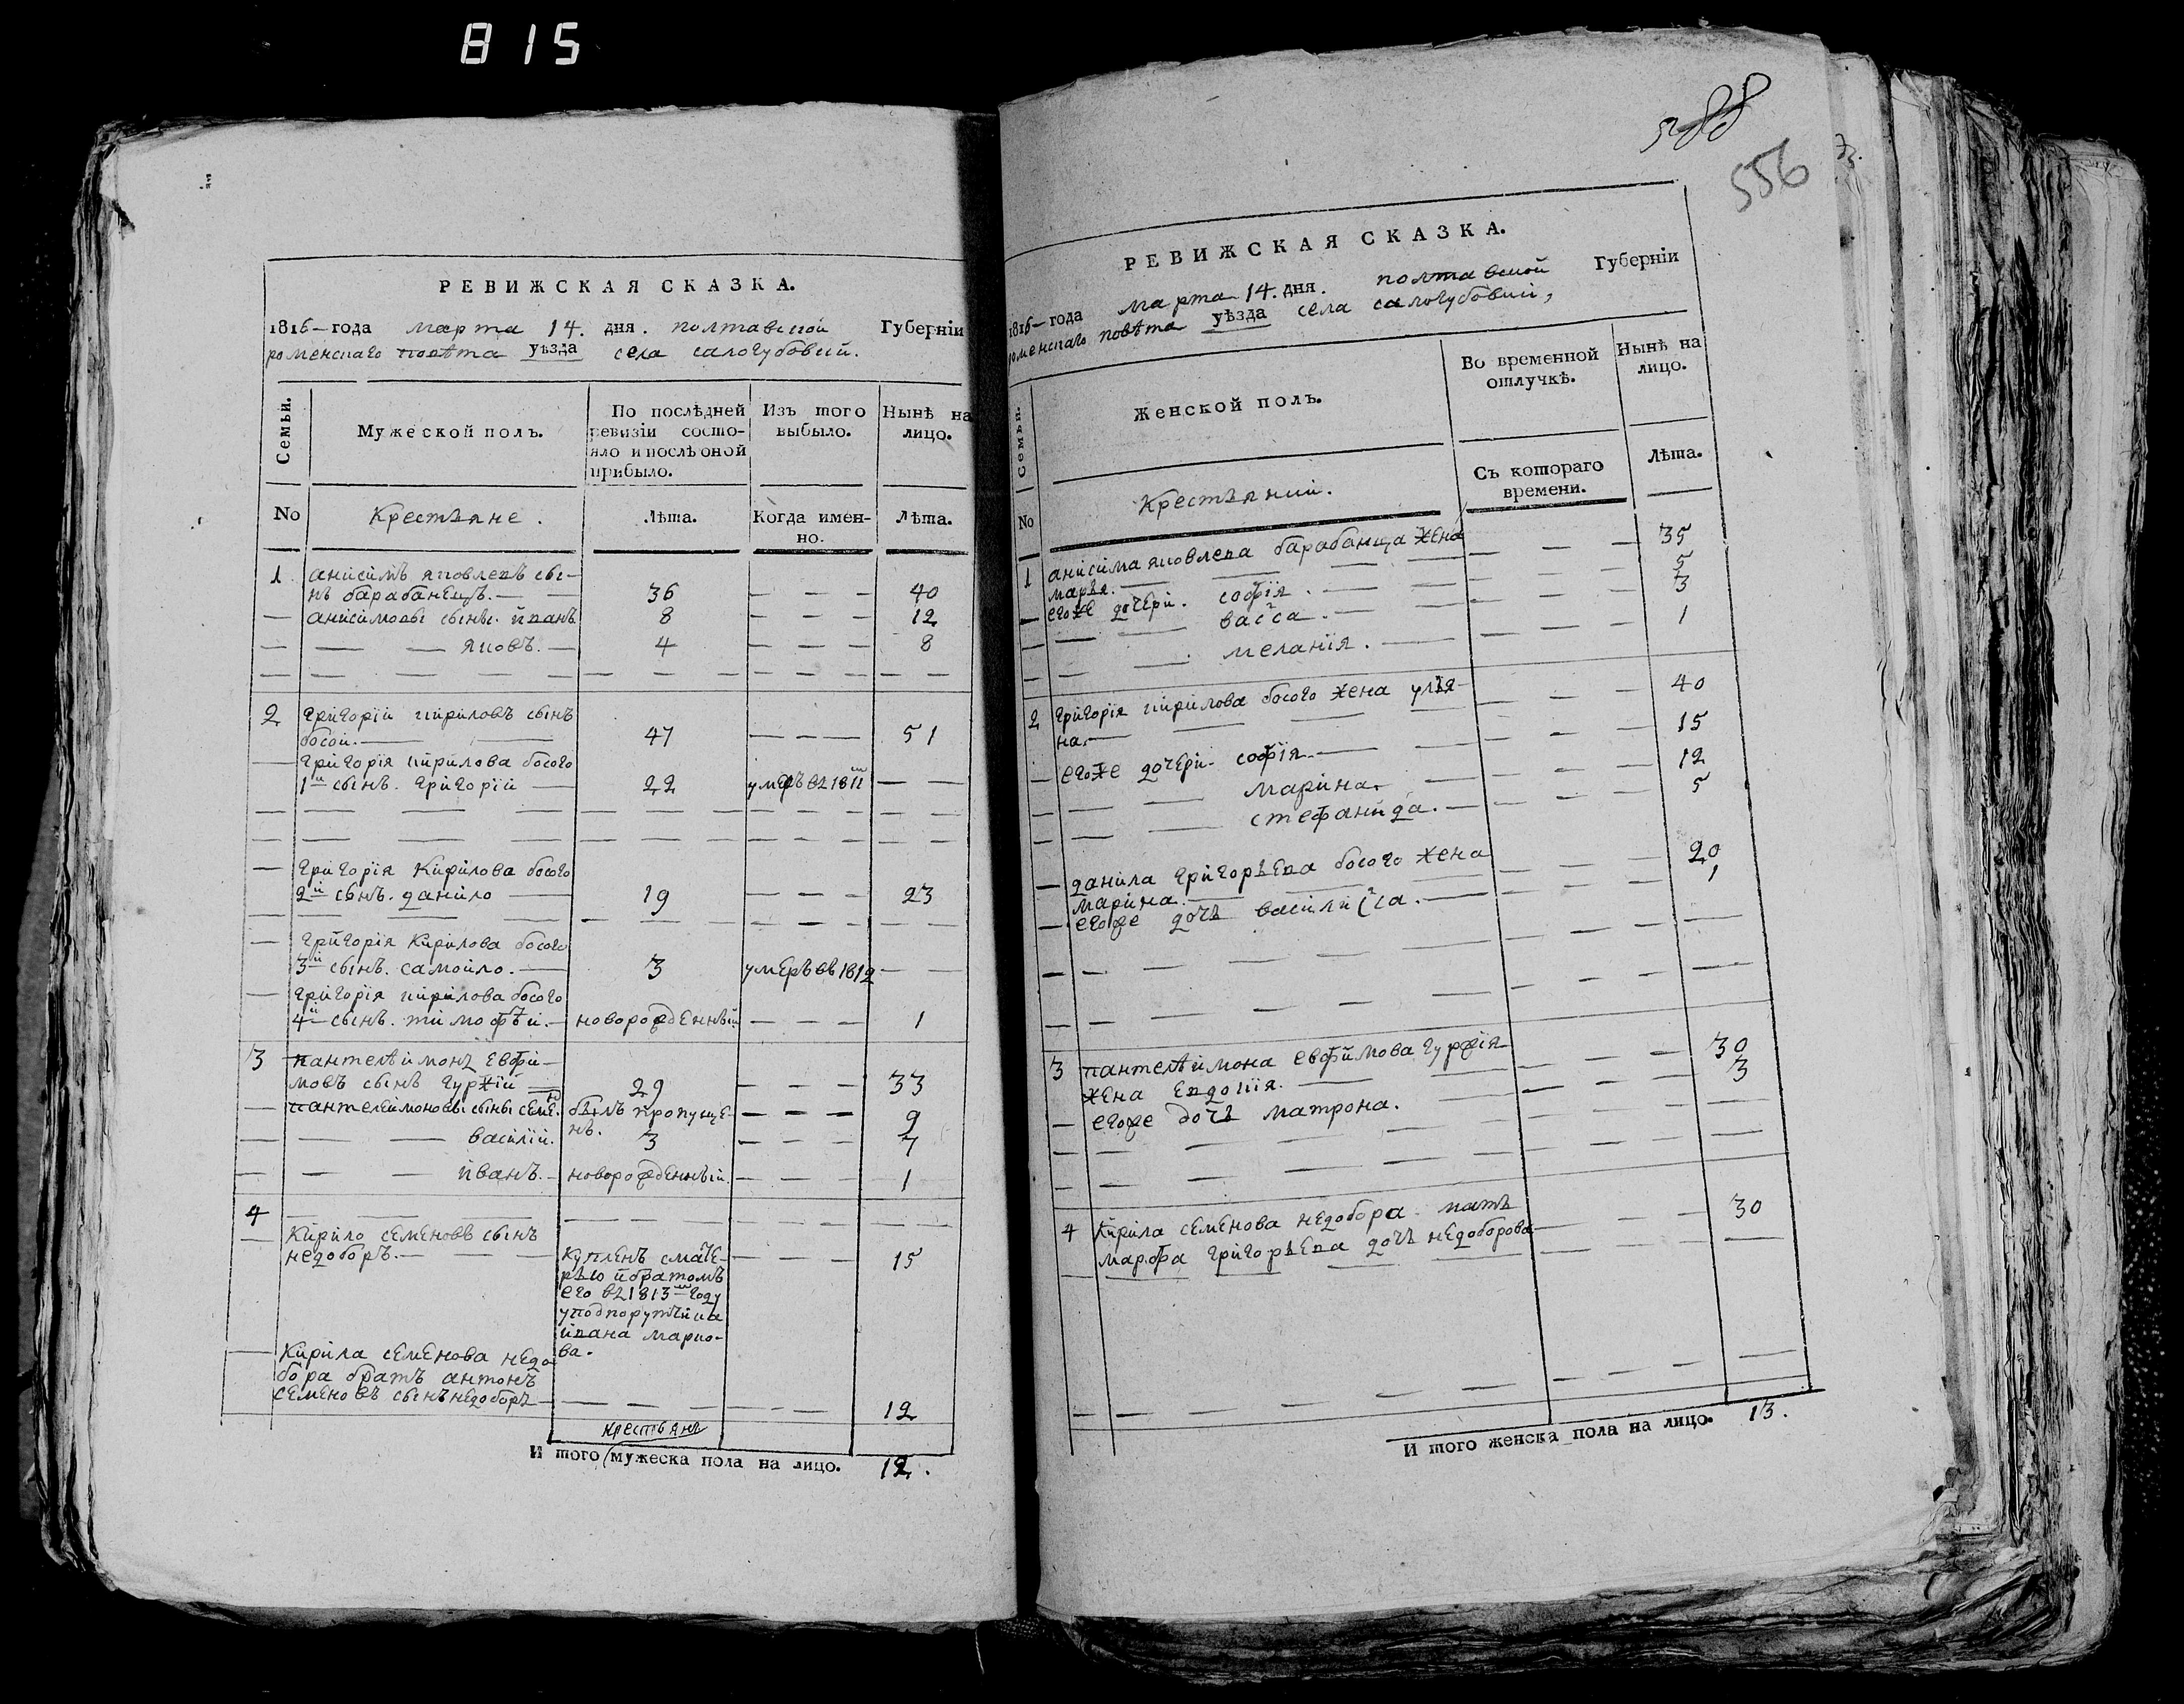 815
РЕВИЖСКАЯ СКАЗКА.
1816-года марта 14. дня. полтавской Губерніи
роменскаго повѣта уѣзда села салогубовки.
Семьи. Мужеской полъ. По послѣдней ревизіи состояло и послѣ оной прибыло. Изъ того выбыло. Нынѣ на лицо.
No Крестьяне. Лѣта. Когда именно. Лѣта.
1 анисимъ яковлевъ сы-
нъ барабанецъ. 36 — — — 40
— анисимовы сыны. иванъ 8 — — — 12
— — — яковъ. — 4 — — — 8
2 григорій кириловъ сынъ
босой. 47 — — — 51
— григорія кирилова босого
1й сынъ. григорій — 22 умеръ въ 1811м — —
— григорія Кирилова босого
2й сынъ. данило — 19 — — — 23
— григорія Кирилова босого
3й сынъ. самойло. — 3 умеръ въ 1812 — —
— григорія кирилова босого
4й сынъ. тимофѣй. — новорожденный — — — 1
3 пантелѣимонъ евфи-
мовъ сынъ гуржій — 29 — — — 33
— пантелеймоновы сыны семе. былъ пропуще-
нъ. — — — 9
— — — василій. 3 — — — 7
— — — иванъ. — новорожденный. — — — 1
4
— Кирило семеновъ сынъ
недоборъ. — — купленъ с мате-
рью и братомъ
его въ 1813м году
у подпорутчика
ивана марко-
ва. — — — 15
— Кирила семенова недо-
бора братъ антонъ
семеновъ сынъ недоборъ — — — — 12
крестьянъ
И того мужеска пола на лицо. 12.
588
556
РЕВИЖСКАЯ СКАЗКА.
1816-года марта 14. дня. полтавской Губерніи
роменскаго повѣта уѣзда села салогубовки,
Семьи. Женской полъ. Во временной отлучкѣ. Нынѣ на лицо.
No Крестьянки. Съ котораго времени. Лѣта.
1 анисима яковлева барабанца жена
марья. — — — 35
— егоже дочери. софія. — — — 5
— — васса. — — — 3
— — меланія. — — — 1
2 григорія кирилова босого жена улья-
на. — — — 40
— егоже дочери. софія. — — — 15
— — марина. — — — 12
— — стефанида. — — — 5
— данила григорьева босого жена
марина. — — — 20
— егоже дочь василисса. — — — 1
3 пантелѣимона евфимова гуржія
жена евдокія. — — — 30
— егоже дочь матрона. — — — 3
4 Кирила семенова недобора мать
марфа григорьева дочь недоборова — — — 30
И того женска пола на лицо. 13.